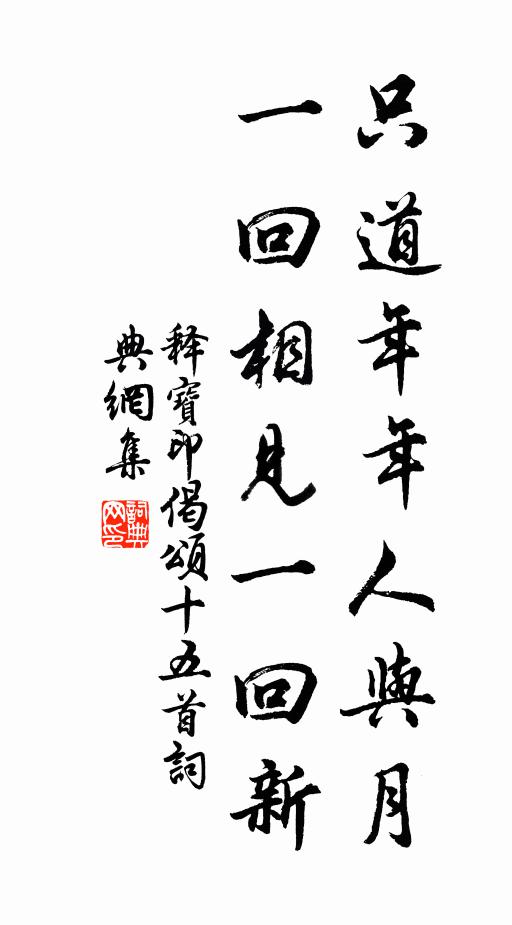 只道年年人與月
一回相見一回新
釋寶印偈頌十五首詞
典網集
詞典
网印